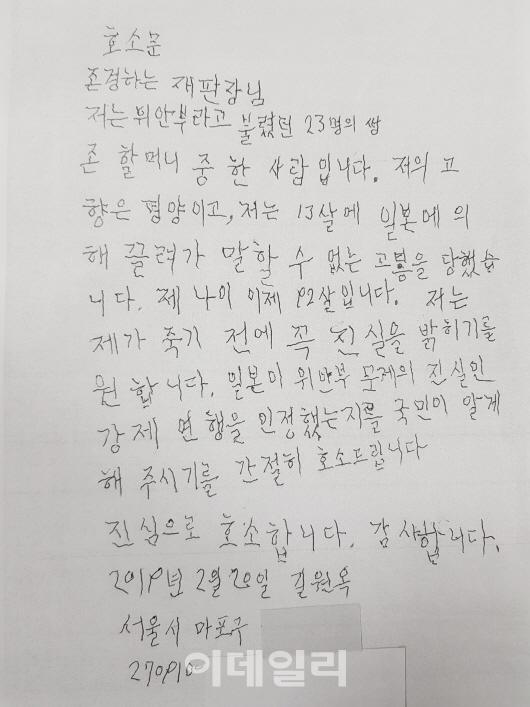 호소문
존경하는 재판장님
저는 위안부라고 불렸던 23명의 생
존 할머니 중 한 사람입니다. 저의 고
향은 평양이고, 저는 13살에 일본에 의
해 끌려가 말할 수 없는 고통을 당했습
니다. 제 나이 이제 92살입니다. 저는
제가 죽기 전에 꼭 진실을 밝히기를
원합니다. 일본이 위안부 문제의 진실인
강제 연행을 인정했는지를 국민이 알게
해 주시기를 간절히 호소드립니다
진심으로 호소합니다. 감사합니다.
2019년 2월 20일 길원옥
서울시 마포구
이데일리